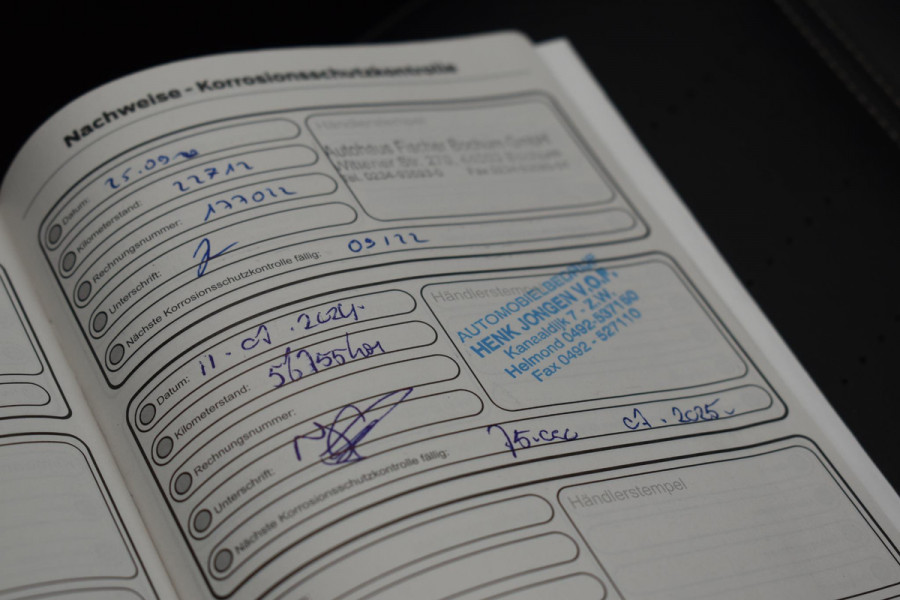 Nachweise - Korrosionsschutzkontrolle
Datum: 25.09.20
Kilometerstand: 22712
Rechnungsnummer: 177022
Unterschrift:
Nächste Korrosionsschutzkontrolle fällig: 09122
Händlerstempel
Autohaus Fischer Bochum GmbH
Wittener Str.
Tel. 0234-93593-0 Fax
Datum: 11-07.2024.
Kilometerstand: 56755km
Rechnungsnummer:
Unterschrift:
Nächste Korrosionsschutzkontrolle fällig: 75.000 07.2025
Händlerstempel
AUTOMOBIELBEDRIJF
HENK JONGEN V.O.F.
Kanaaldijk 7 - Z.W.
Helmond 0492-537150
Fax 0492 - 527110
Händlerstempel